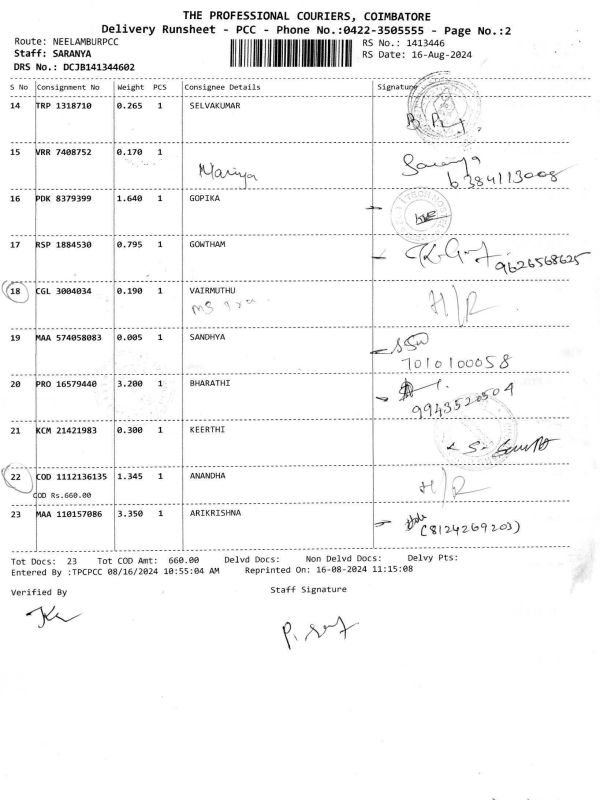 THE PROFESSIONAL COURIERS, COIMBATORE
Delivery Runsheet - PCC - Phone No.:0422-3505555 - Page No.:2
Route: NEELAMBURPCC RS No.: 1413446
Staff: SARANYA RS Date: 16-Aug-2024
DRS No.: DCJB141344602
S No Consignment No Weight PCS Consignee Details Signature
14 TRP 1318710 0.265 1 SELVAKUMAR
15 VRR 7408752 0.170 1
Mariya Saranya
6384113008
16 PDK 8379399 1.640 1 GOPIKA
17 RSP 1884530 0.795 1 GOWTHAM
9626568625
18 CGL 3004034 0.190 1 VAIRMUTHU H/R
19 MAA 574058083 0.005 1 SANDHYA
7010100058
20 PRO 16579440 3.200 1 BHARATHI
9943520504
21 KCM 21421983 0.300 1 KEERTHI
22 COD 1112136135 1.345 1 ANANDHA H/R
COD Rs.660.00
23 MAA 110157086 3.350 1 ARIKRISHNA
(8124269203)
Tot Docs: 23 Tot COD Amt: 660.00 Delvd Docs: Non Delvd Docs: Delvy Pts:
Entered By :TPCPCC 08/16/2024 10:55:04 AM Reprinted On: 16-08-2024 11:15:08
Verified By Staff Signature